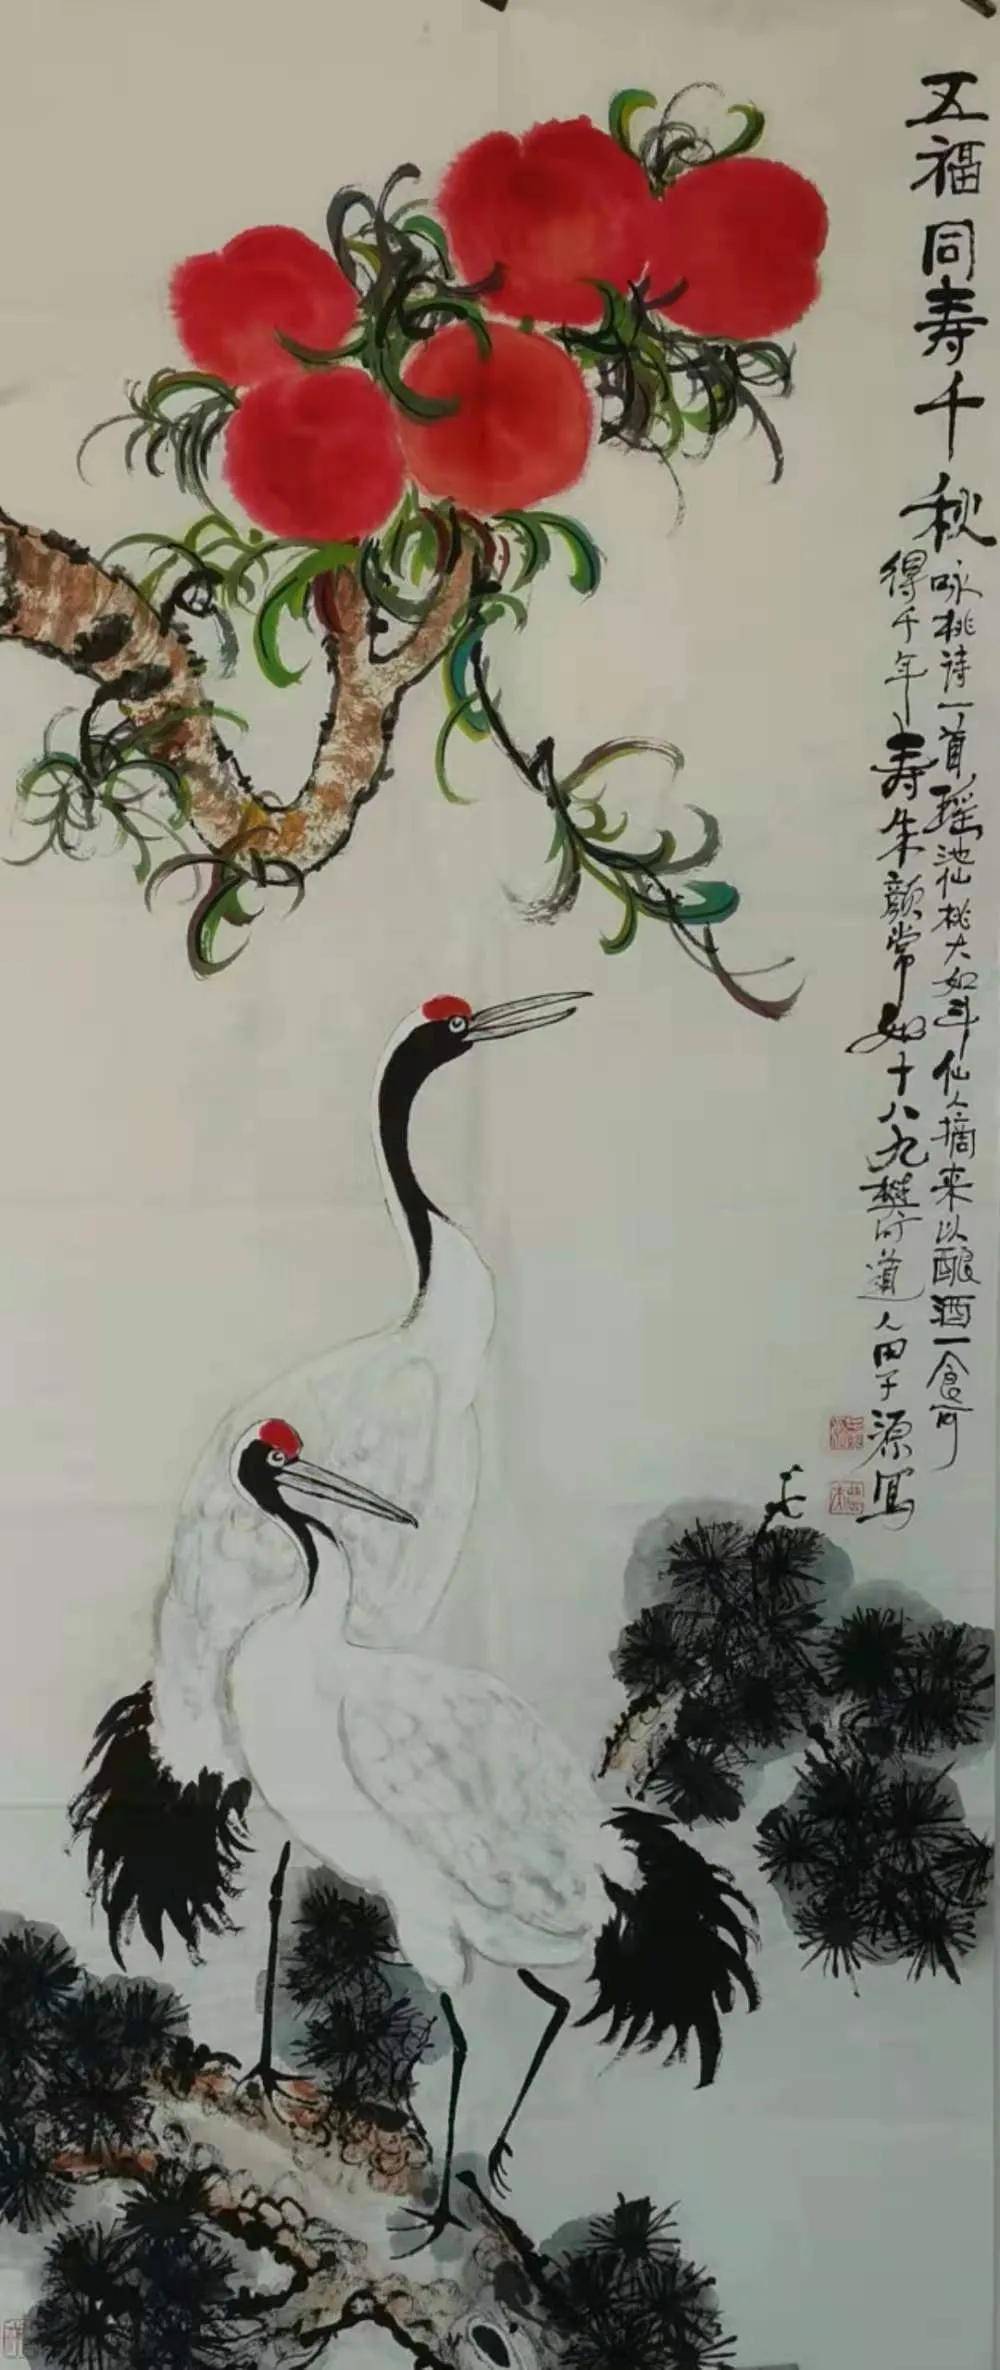 五福同寿千秋
咏桃诗一首瑶池仙桃大如斗仙人摘来以酿酒一食可
得千年寿朱颜常如十八九樊 道人田子源写